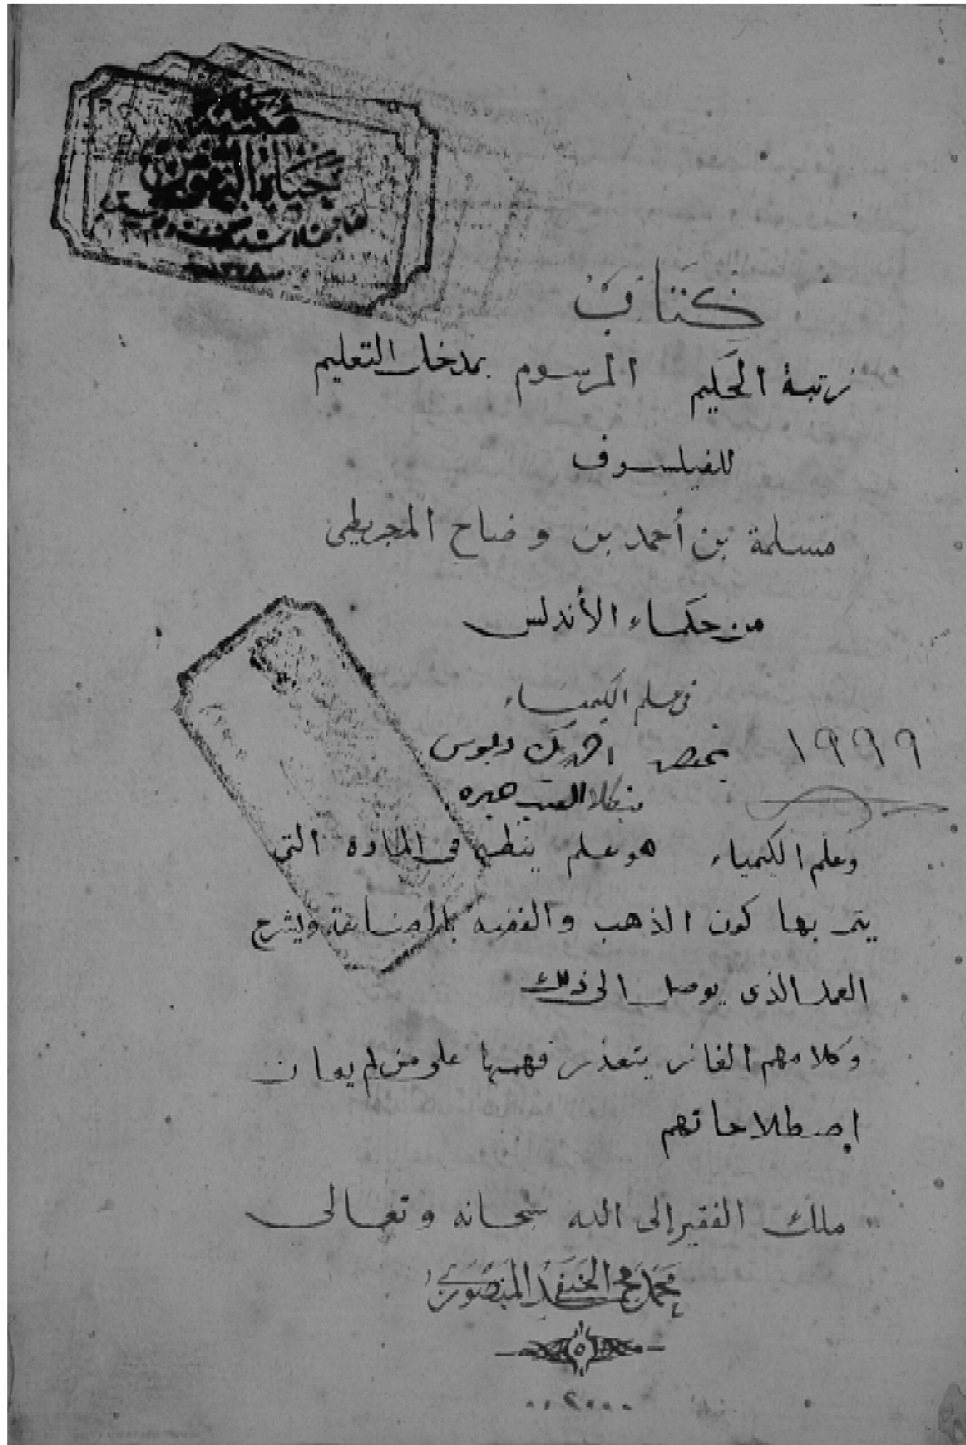 مكتبة
كتاب
رتبة الحكيم المرسوم بمدخل التعليم
للفيلسوف
مسلمة بن أحمد بن وضاح المجريطى
من حكماء الأندلس
فى علم الكيمياء
١٩٩٩
وعلم الكيمياء هو علم ينظر فى المادة التى
يتم بها كون الذهب والفضة بالصناعة ويشرح
العمل الذى يوصل الى ذلك
وكلامهم ألغاز يتعذر فهمها على من لم يعان
إصطلاحاتهم
ملك الفقير إلى الله سبحانه وتعالى
محمد المنصورى